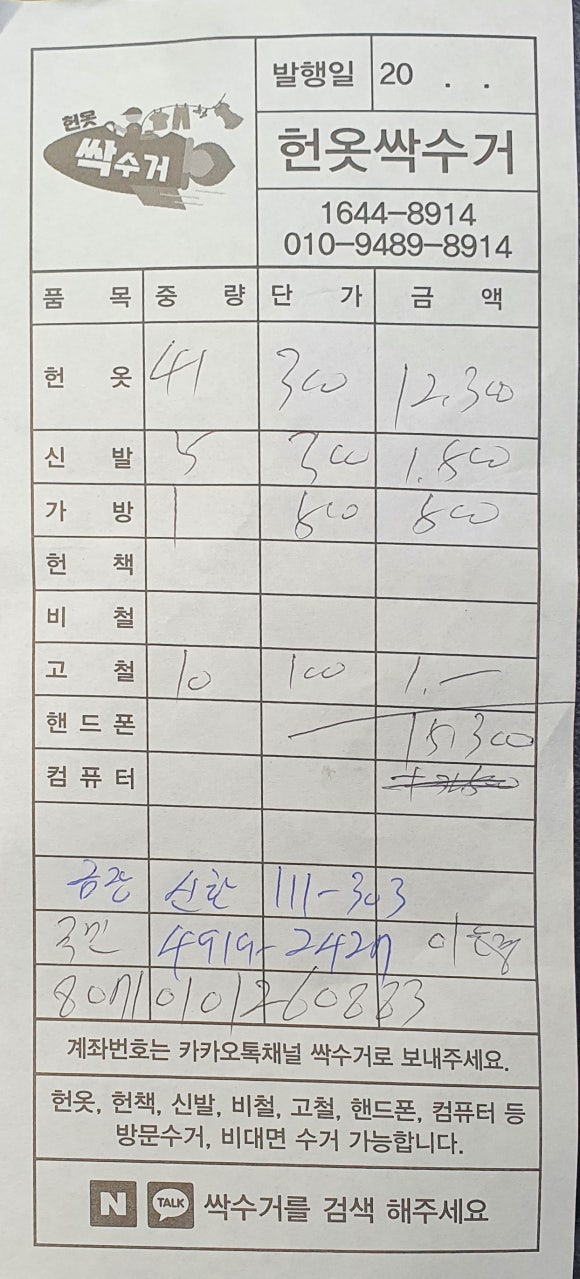 헌옷
싹수거
발행일 20 . .
헌옷싹수거
1644-8914
010-9489-8914
품 목 중 량 단 가 금 액
헌 옷 41 300 12,300
신 발 5 300 1.500
가 방 1 500 500
헌 책
비 철
고 철 10 100 1.—
핸드폰 15,300
컴퓨터
금광 신한 111-303
국민 4919-2427
010126 0883
계좌번호는 카카오톡채널 싹수거로 보내주세요.
헌옷, 헌책, 신발, 비철, 고철, 핸드폰, 컴퓨터 등
방문수거, 비대면 수거 가능합니다.
N TALK 싹수거를 검색 해주세요